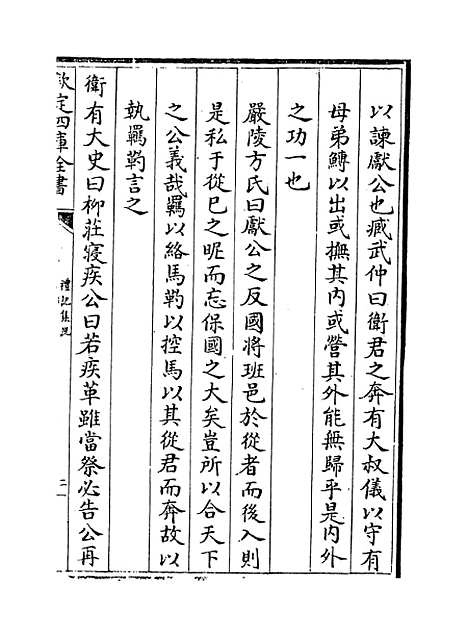 以諫獻公也臧武仲曰衛君之奔有大叔儀以守有
母弟鱄以出或撫其内或營其外能無歸乎是内外
之功一也
嚴陵方氏曰獻公之反國將班邑於從者而後入則
是私于從已之昵而忘保國之大矣豈所以合天下
之公義哉羈以絡馬靮以控馬以其從君而奔故以
執羈靮言之
衛有大史曰柳莊寢疾公曰若疾革雖當祭必告公再
欽定四庫全書
禮記集説